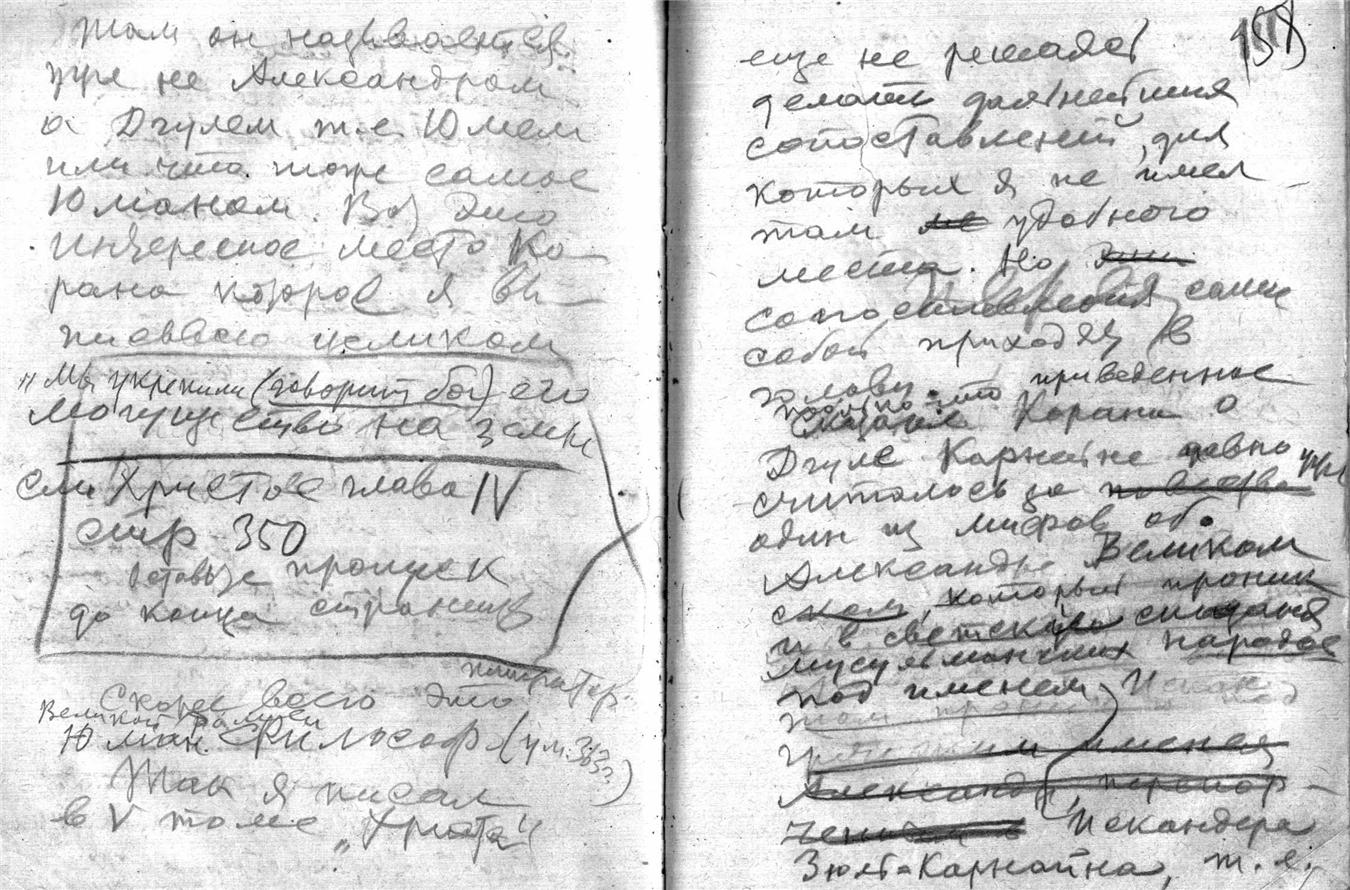 там он называется
уже не Александром
а Дчулем т.е. Юлем
или что тоже самое
Юлианом. Вот это
интересное место Ко-
рана которое я вы-
писываю целиком
"Мы укрепили (говорит бог) его
могущество на земле
см Христос глава IV
стр 350
оставьте пропуск
до конца страницы
император
Скорее всего это
Великой Ромеи
Юлиан Философ (ум. 363 г.)
Так я писал
в V томе "Христа"
158
еще не решаясь
делать дальнейших
сопоставлений, для
которых я не имел
там не удобного
места. Но эти
сопоставления сами
собой приходят в
голову.
только что приведенное
сказание Корана о
Дчуле Карнайне давно уже
считалось за
один из мифов об
Александре Великом
, который проник
и в светские сказания
мусульманских народов
под именем
под
именем
Александр
Искандера
Зюль-Карнайна, т. е.